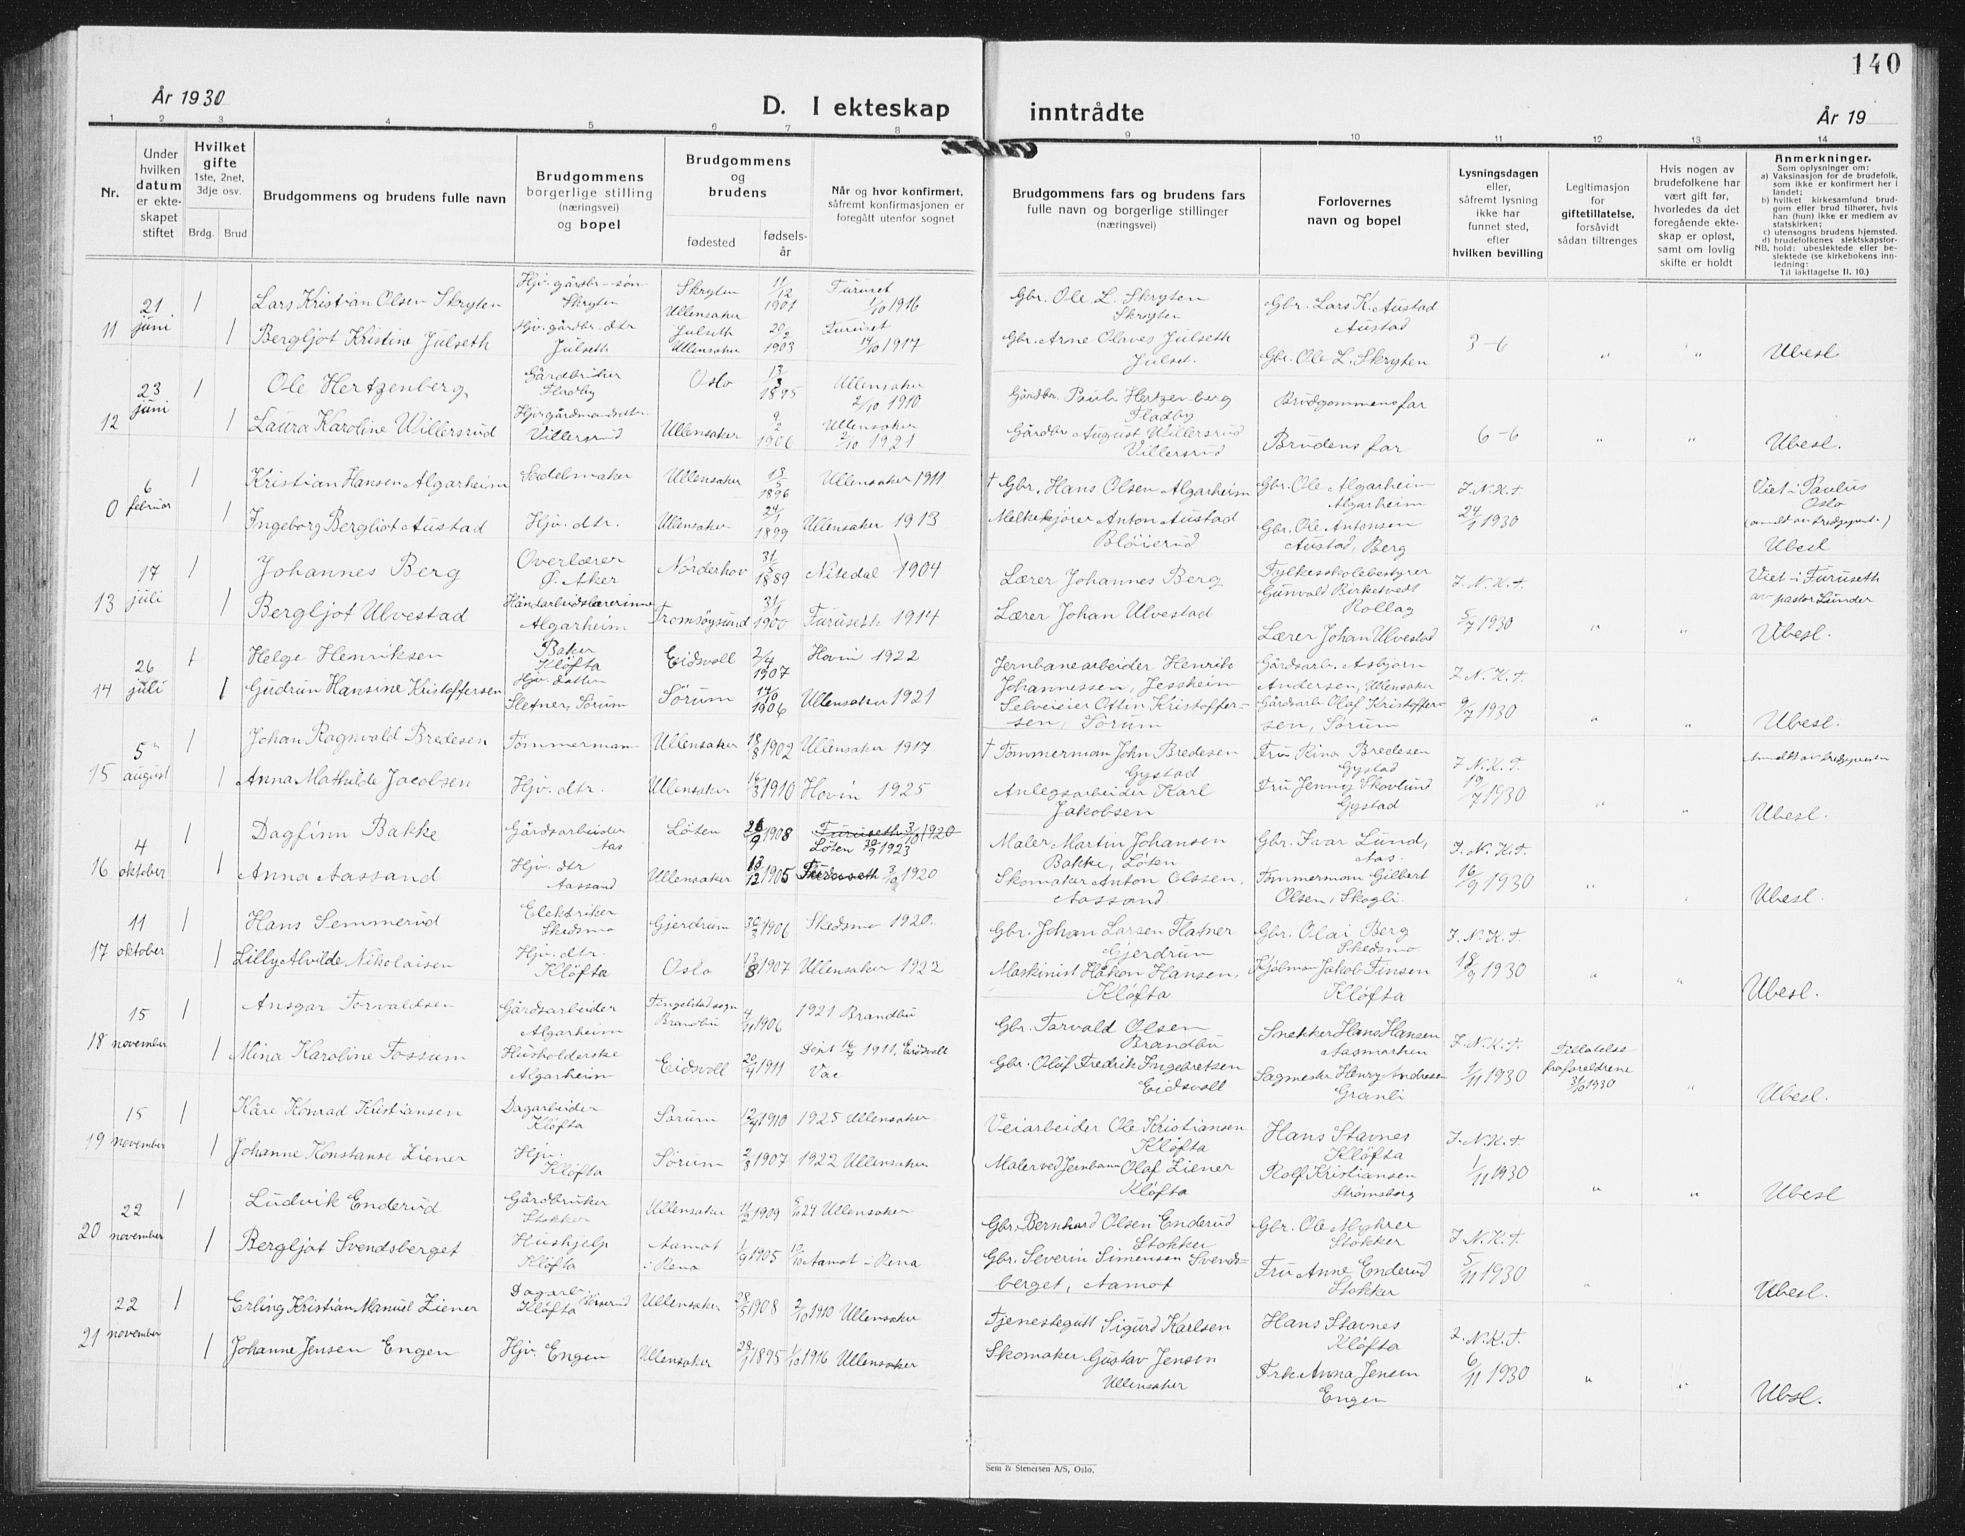 140
År 1930
D. I ekteskap inntrådte
År 19
1 2 3 4 5 6 7 8 9 10 11 12 13 14
Nr.
Under hvilken datum er ekteskapet stiftet
Hvilket gifte 1ste, 2net, 3dje osv.
Brdg. Brud
Brudgommens og brudens fulle navn
Brudgommens borgerlige stilling (næringsvei) og bopel
Brudgommens og brudens
fødested
fødselsår
Når og hvor konfirmert, såfremt konfirmasjonen er foregått utenfor sognet
Brudgommens fars og brudens fars fulle navn og borgerlige stillinger (næringsvei)
Forlovernes navn og bopel
Lysningsdagen eller, såfremt lysning ikke har funnet sted, efter hvilken bevilling
Legitimasjon for giftetillatelse, forsåvidt sådan tiltrenges
Hvis nogen av brudefolkene har vært gift før, hvorledes da det foregående ekteskap er opløst, samt om lovlig skifte er holdt
Anmerkninger.
Som oplysninger om:
a) Vaksinasjon for de brudefolk, som ikke er konfirmert her i landet;
b) hvilket kirkesamfund brudgom eller brud tilhører, hvis han (hun) ikke er medlem av statskirken;
c) utensogns brudens hjemsted.
d) brudefolkenes slektskapsforhold: ubeslektede eller beslektede (se kirkebokens innledning:
NB. Til iakttagelse II. 10.)
11 21 juni 1 Lars Kristian Olsen Skryten Hjv. gårdbr.-søn Skryten Skryten Ullensaker 11/12 1901 Furuset 1/10 1916 Gbr. Ole L. Skryten Skryten Gbr. Lars K. Austad Austad
1 Bergljot Kristine Julseth Hjv. gårdbr. dtr Julseth Julseth Ullensaker 20/2 1903 Furuset 14/10 1917 Gbr. Arne Olaves Julseth Julset. Gbr. Ole L. Skryten 3-6 " " Ubesl
12 23 juni 1 Ole Hertzenberg Gårdbruker Fladby Oslo 13/3 1895 Ullensaker 2/10 1910 Gårdbr. Paul Hertzenberg Fladby Brudgommens far
1 Laura Karoline Willersrud Villersrud Ullensaker 9/2 1906 Ullensaker 2/10 1921 Gårdbr August Willersrud Villersrud Brudens far 6-6 " " Ubesl.
0 6 februar 1 Kristian Hansen Algarheim Sadelmaker Ullensaker 13/5 1896 Ullensaker 1911 † Gbr. Hans Olsen Algarheim Gbr. Ole Algarheim Algarheim J. N. K. T. Viet i Paulus Oslo
1 Ingeborg Bergliot Austad Hjv. dtr. Ullensaker 24/1 1899 Ullensaker 1913 Melkekjører Anton Austad Bløierud Gbr. Ole Antonsen Austad, Berg 24/1 1930 Ubesl
13 17 juli 1 Johannes Berg Overlærer Ø. Aker Norderhov 31/5 1889 Nitedal 1904 Lærer Johannes Berg Fylkesskolebestyrer Gunvald Birketvedt Rollag J. N. K. T. Viet i Furuseth av pastor Lunder
1 Bergljot Ulvestad Håndarbeidslærerinne Algarheim Tromsøysund 31/1 1900 Furuseth 1914 Lærer Johan Ulvestad Lærer Johan Ulvestad 5/7 1930 " " Ubesl.
14 26 juli 1 Helge Henriksen Baker Kløfta Eidsvoll 2/4 1907 Hovin 1922 Jernbanearbeider Henrik Johannessen, Jessheim Gårdsarb. Asbjørn Andersen, Ullensaker J. N. K. T.
1 Gudrun Hansine Kristoffersen Hjv. datter Sletner, Sørum Sørum 14/10 1906 Ullensaker 1921 Selveieier Ottin Kristoffersen, Sørum Gårdsarb Olaf Kristoffersen, Sørum 9/7 1930 " " Ubesl.
15 5 august 1 Johan Ragnvald Bredesen Tømmermann Ullensaker 18/8 1902 Ullensaker 1917 † Tømmermann John Bredesen Gystad Fru Rina Bredesen Gystad J. N. K. T.
1 Anna Mathilde Jacobsen Hjv. dtr. Ullensaker 16/3 1910 Hovin 1925 Anlegsarbeider Karl Jakobsen Fru Jenny Skovlund Gystad 19/7 1930 " Ubesl.
16 4 oktober Dagfinn Bakke Gårdsarbeider Aas Løten 26/9 1908 Furuseth 3/10 1920 Løten 30/9 1923 Maler Martin Johansen Bakke, Løten Gbr. Ivar Lund, Aas. J. N. K. T.
1 Anna Aassand Hjv. dtr Aassand Ullensaker 13/12 1905 Furuseth 3/10 1920 Skomaker Anton Olssen, Aassand Tømmermann Gilbert Olsen, Skogli 16/9 1930 " Ubesl.
17 11 oktober 1 Hans Semmerud Elektriker Skedsmo Gjerdrum 30/3 1906 Skedsmo 1920. Gbr. Johan Larsen Flatner Gjerdrum Gbr. Olai Berg Skedsmo J. N. K. T.
1 Lilly Alvilde Nikolaisen Hjv. dtr. Kløfta Oslo 13/8 1907 Ullensaker 1922 Maskinist Håkon Hansen, Kløfta Kjøbmann Jakob Finsen Kløfta 18/9 1930 " " Ubesl.
18 15 november 1 Ansgar Torvaldsen Gårdsarbeider Algarheim Tingelstad sogn Brandbu 4/11 1906 1921 Brandbu Gbr. Torvald Olsen Brandbu Snekker Hans Hansen Aasmarken J. N. K. T. Tillatelse fra foreldrene 31/10 1930
1 Mina Karoline Fossum Husholderske Algarheim Eidsvoll 20/4 1911 Døpt 16/7 1911, Eidsvoll Vac Gbr. Oluf Fredrik Ingebretsen Eidsvoll Sagmester Henry Andresen Granli 1/11 1930 " Ubesl.
19 15 november 1 Kåre Konrad Kristiansen Dagarbeider Kløfta Sørum 12/4 1910 1925 Ullensaker Veiarbeider Ole Kristiansen Kløfta Hans Stavnes Kløfta J. N. K. T.
1 Johanne Konstanse Ziener Hjv. Kløfta Sørum 2/8 1907 1922 Ullensaker Maler ved Jernbanen Olaf Ziener Kløfta Rolf Kristiansen Strømsborg 1/11 1930 " " Ubesl
20 22 november 1 Ludvik Enderud Gårdbruker Stokker Ullensaker 1909 24 Ullensaker Gbr. Bernhard Olsen Enderud Stokker Gbr. Ole Myhrer Stokker J. N. K. T.
1 Bergljot Svendsberget Hushjelp Kløfta Aamot i Rena 1/9 1905 Aamot i Rena Gbr. Severin Simensen Svendsberget, Aamot Fru Anne Enderud Stokker 5/11 1930 " Ubesl.
21 22 november 1 Erling Kristian Manuel Ziener Dagarb. Kløfta Ullensaker 28/5 1908 Ullensaker Tjenestegutt Sigurd Karlsen Hans Stavnes Kløfta J. N. K. T.
1 Johanne Jensen Engen Hjv. Engen Ullensaker 1895 1/10 1916 Ullensaker Skomaker Gustav Jensen Ullensaker Frk Anna Jensen Engen 6/11 1930 " " Ubsl.
Sem & Stenersen A/S, Oslo.